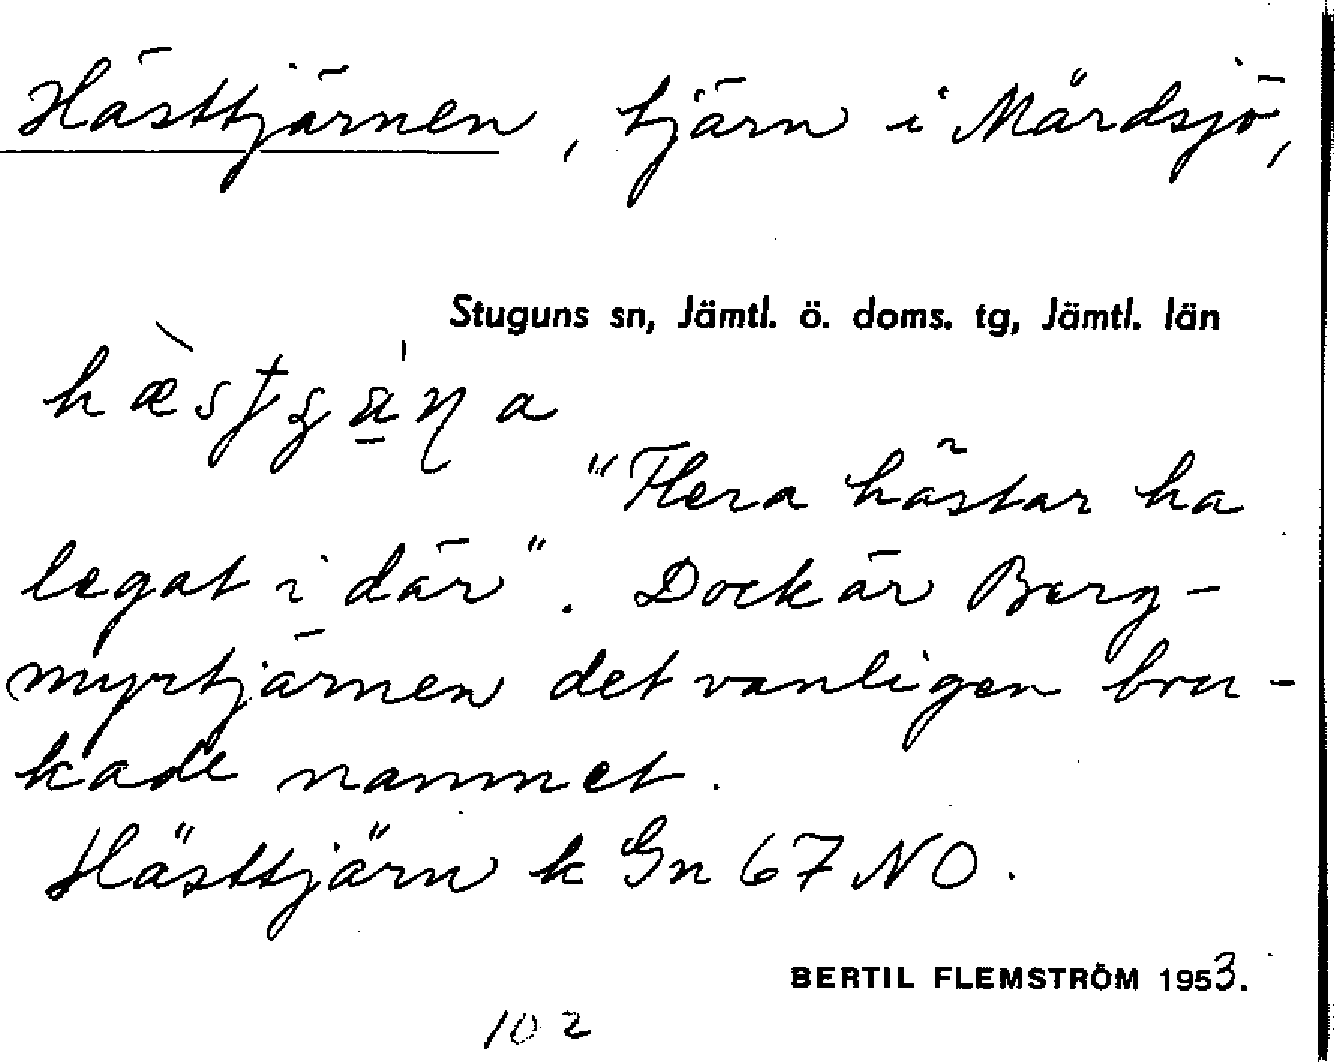 Hästtjärnen, tjärn i Mårdsjö,
Stuguns sn, Jämtl. ö. doms. tg, Jämtl. län
"Flera hästar ha
legat i där". Dock är Berg-
myrtjärnen det vanligen bru-
kade namnet.
Hästtjärn k Gn 67 NO.
BERTIL FLEMSTRÖM 1953.
102